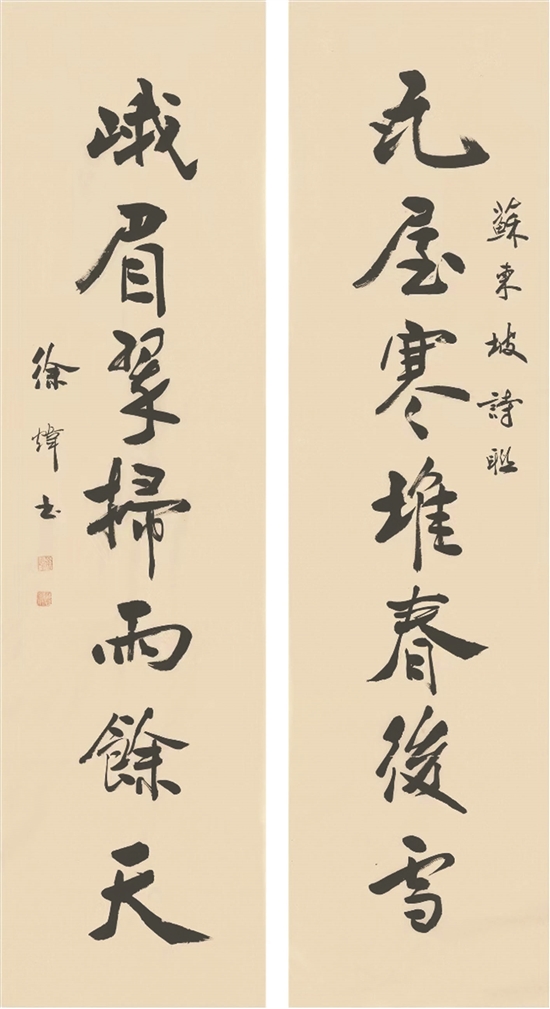 瓦屋寒堆春後雪
蘇東坡詩聯
峨眉翠掃雨餘天
徐煒書